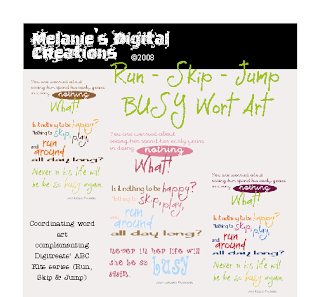 Melanie's Digital
Creations
©2008
Run - Skip - Jump
BUSY Wort Art
You are worried about
seeing him spend his early years
in doing nothing
What!
Is it nothing to be happy?
Nothing to skip, play,
and run
around
all day long?
Never in his life will
he be so busy again.
You are worried about
seeing him spend his early years
in doing nothing
What!
Is it nothing to be happy?
Nothing to skip, play,
and run
around
all day long?
Never in her life will
she be so busy
again.
You are worried about
seeing him spend his early years
in doing nothing
What!
Is it nothing to be happy?
Nothing to skip, play,
and run
around
all day long?
Never in his life will
he be so busy again.
Coordinating word
art
complementing
Digitreats' ABC
Kits series (Run,
Skip & Jump)